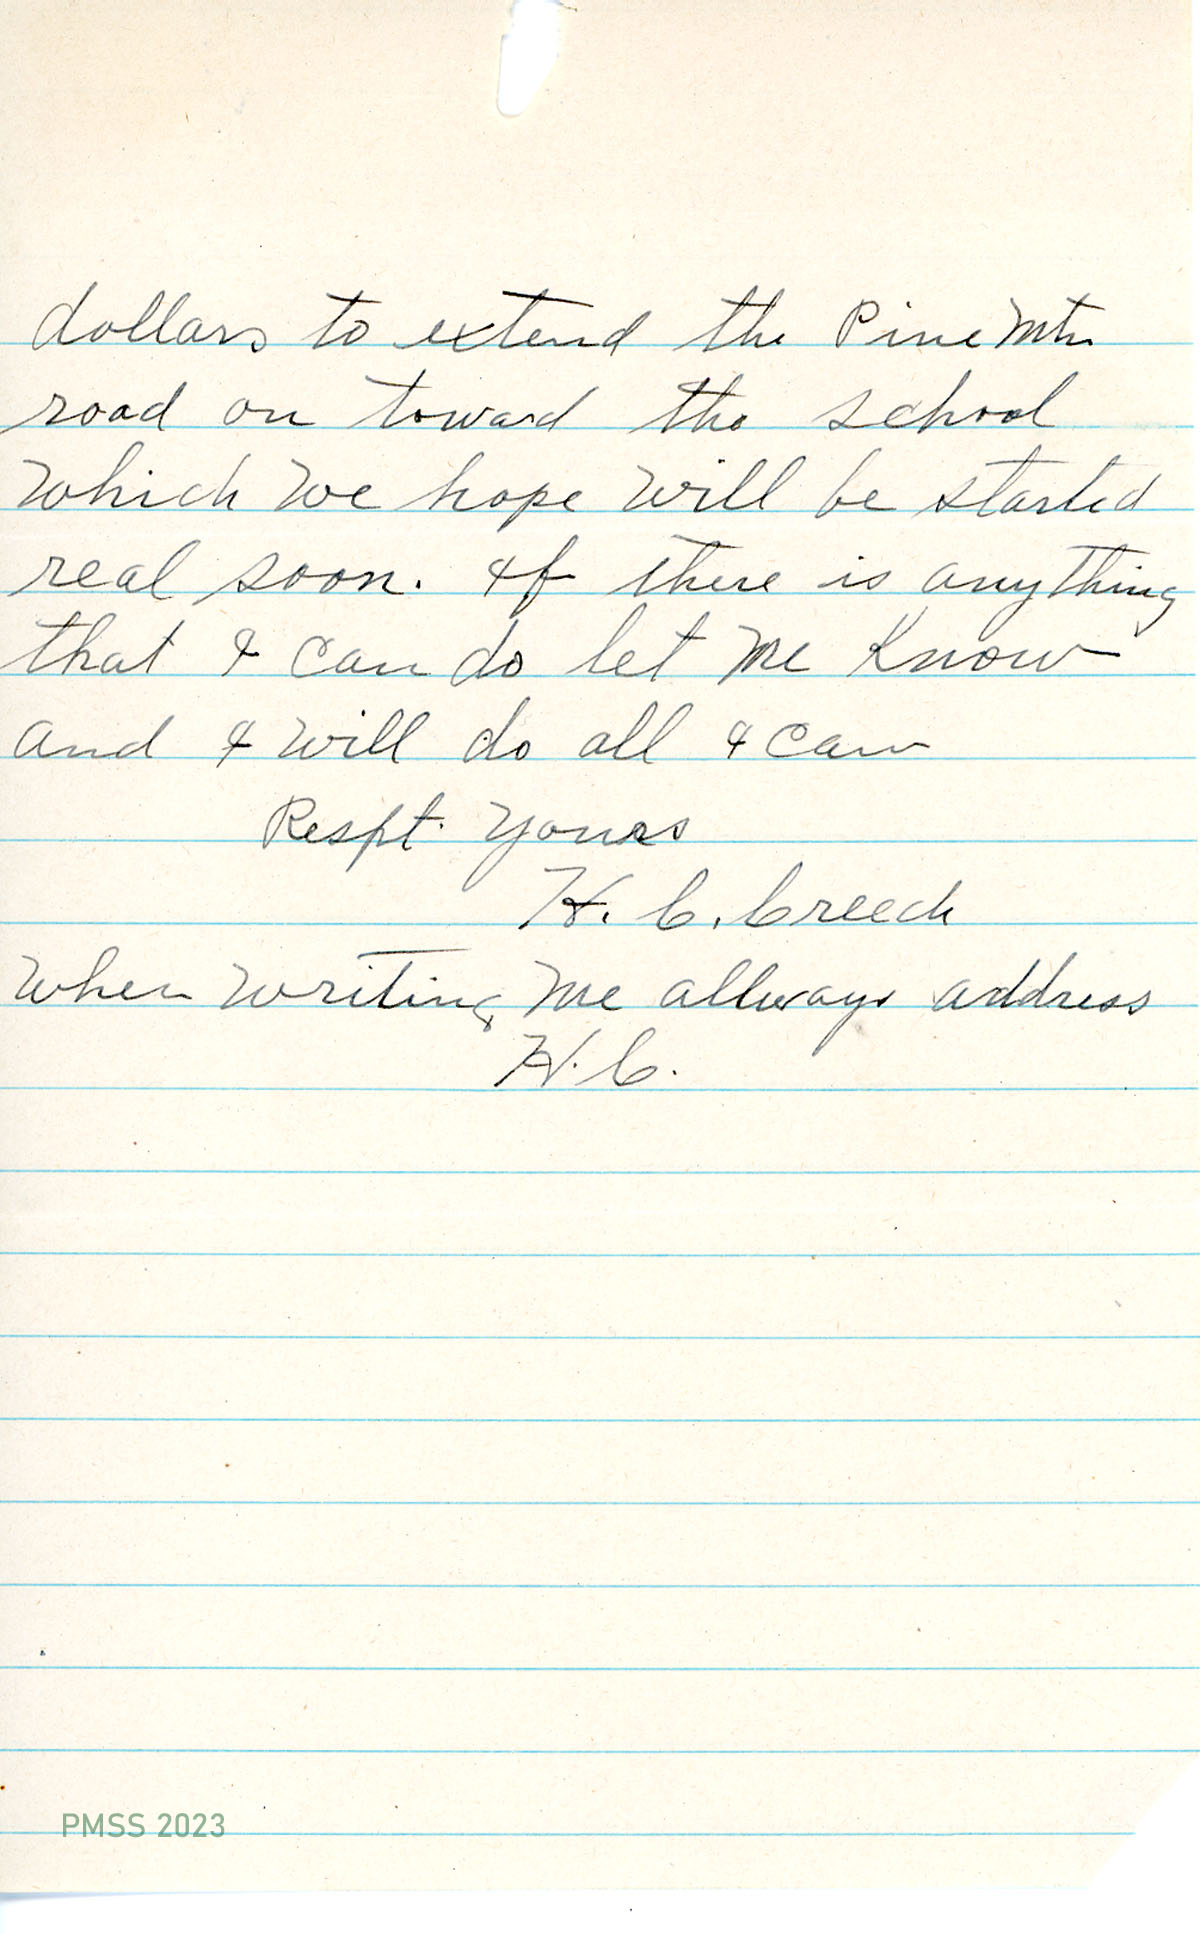 dollars to extend the Pine Mtn
road on toward the school
which we hope will be started
real soon. If there is anything
that I can do let me know
and I will do all I can
Respt. Yours
H. C. Creech
When writing me allways address
H. C.
PMSS 2023